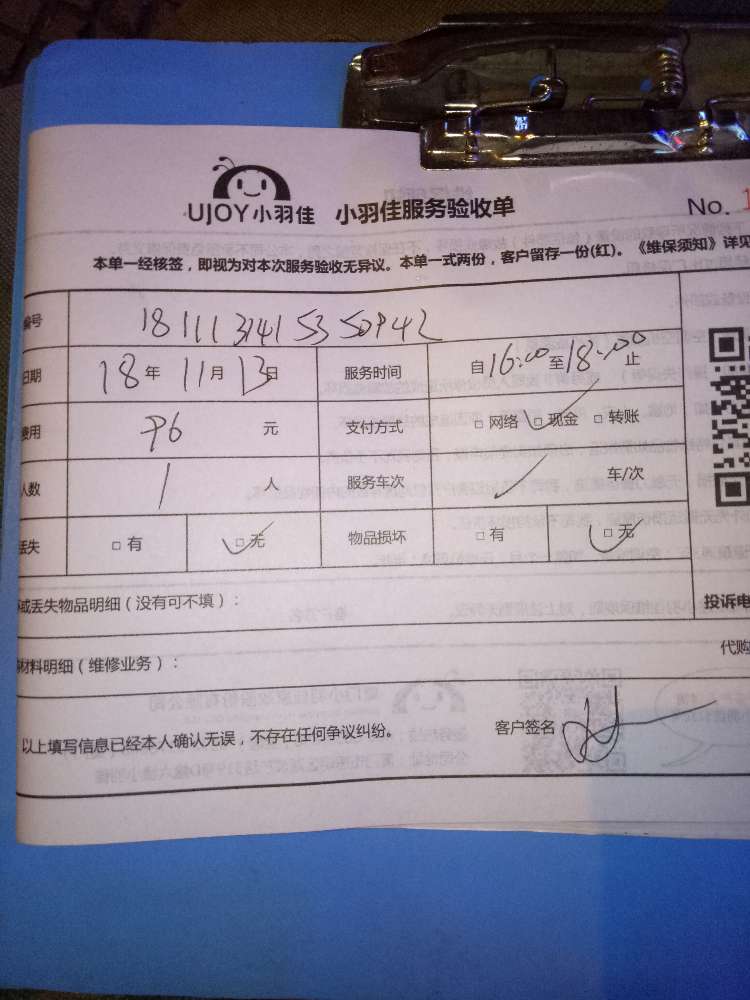 UJOY小羽佳 小羽佳服务验收单 No. 1
本单一经核签，即视为对本次服务验收无异议。本单一式两份，客户留存一份(红)。《维保须知》详见
编号
日期 18年 11月 13日 服务时间 自16:00至18:00止
费用 96 元 支付方式 □ 网络 □ 现金 □ 转账
人数 1 人 服务车次 车/次
丢失 □ 有 □ 无 物品损坏 □ 有 □ 无
或丢失物品明细（没有可不填）： 投诉电
材料明细（维修业务）： 代购
以上填写信息已经本人确认无误，不存在任何争议纠纷。 客户签名